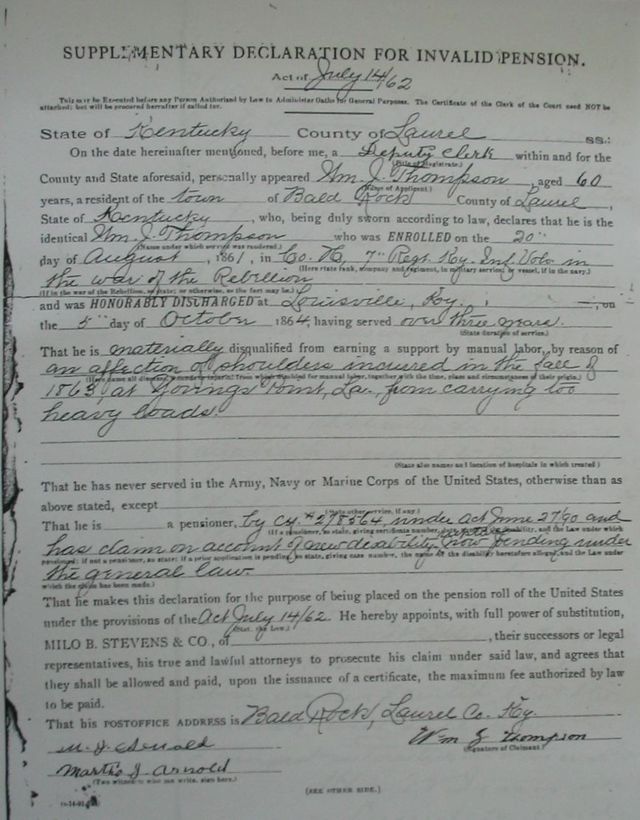 SUPPLEMENTARY DECLARATION FOR INVALID PENSION.
Act of July 14/62
This may be Executed before any Person Authorized by Law to Administer Oaths for General Purposes. The Certificate of the Clerk of the Court need NOT be
attached; but will be procured hereafter if called for.
State of Kentucky County of Laurel ss:
On the date hereinafter mentioned, before me, a Deputy Clerk within and for the
County and State aforesaid, personally appeared Wm. J. Thompson, aged 60
(Name of Applicant.)
years, a resident of the town of Bald Rock County of Laurel,
State of Kentucky, who, being duly sworn according to law, declares that he is the
identical Wm. J. Thompson who was ENROLLED on the 20"
(Name under which service was rendered.)
day of August, 1861, in Co. H, 7" Regt. Ky. Inf. Vols in
(Here state rank, company and regiment, in military service; or vessel, if in the navy.)
the war of the Rebellion
(If in the war of the Rebellion, so state; or otherwise, as the fact may be.)
and was HONORABLY DISCHARGED at Louisville, Ky., on
the 5" day of October 1864, having served over three years.
(State duration of service.)
That he is materially disqualified from earning a support by manual labor, by reason of
an affection of shoulders incurred in the fall of
1863 at Youngs Point, La., from carrying too
heavy loads.
(State also names and location of hospitals in which treated)
That he has never served in the Army, Navy or Marine Corps of the United States, otherwise than as
above stated, except
(State other service, if any.)
That he is a pensioner, by cf. # 278564, under act June 27/90 and
has claim on account of new disability now pending under
the general law.
which the claim has been made.)
That he makes this declaration for the purpose of being placed on the pension roll of the United States
under the provisions of the Act July 14/62. He hereby appoints, with full power of substitution,
(State the Law.)
MILO B. STEVENS & CO., of , their successors or legal
representatives, his true and lawful attorneys to prosecute his claim under said law, and agrees that
they shall be allowed and paid, upon the issuance of a certificate, the maximum fee authorized by law
to be paid.
That his POSTOFFICE ADDRESS is Bald Rock, Laurel Co. Ky.
Arnold Wm J Thompson
(Signature of Claimant.)
Martha J. Arnold
(Two witnesses who can write, sign here.)
(SEE OTHER SIDE.)